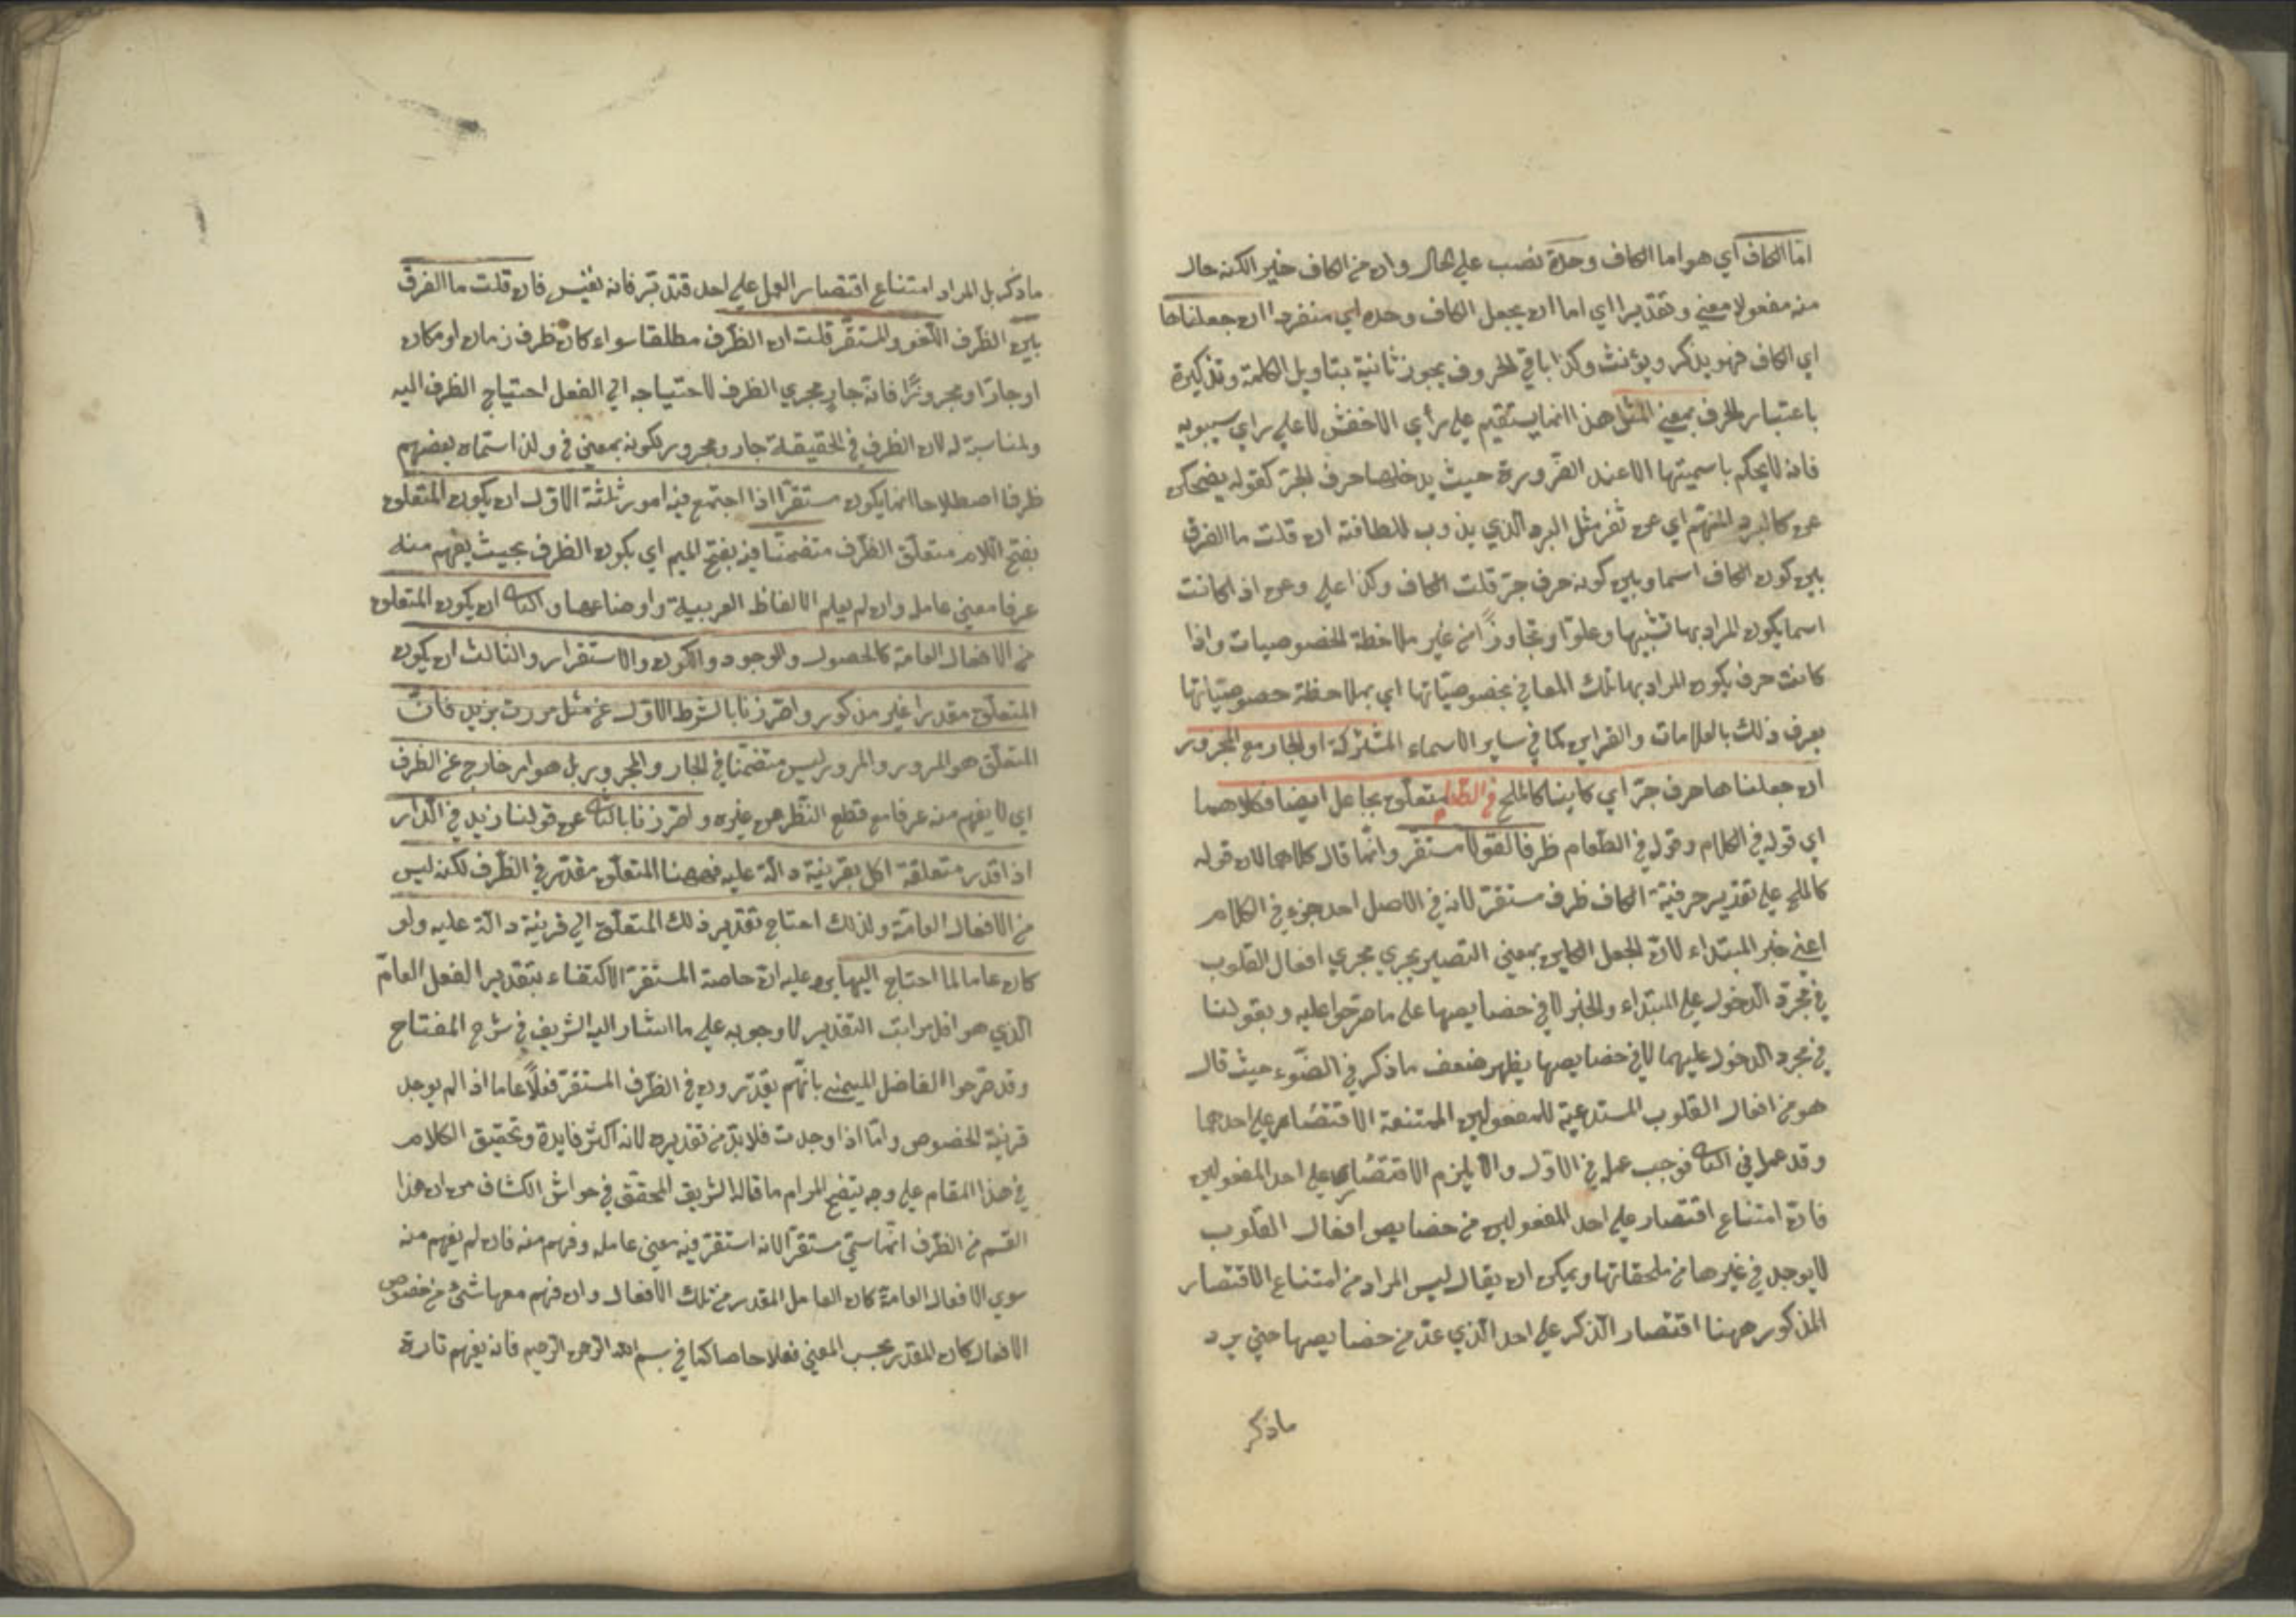 اما الكاف اي هو اما الكاف وحده نصب علي الحال وان من الكاف خير الكنه حال
منه مفعولا معني وتقديرا اي اما ان يجعل الكاف وحده اي منفردا ان جعلناها
اي الكاف فهو يذكر ويؤنث وكذا باقي الحروف يجوز ثانية بتاويل الكلمة وتذكيرة
باعتبار الحرف بمعني المثل هذا انما يستقيم علي رأي الاخفش لا علي راي سيبويه
فانه لا يحكم باسميتها الا عند الضرورة حيث يدخلها حرف الجر كقوله يضحكن
عن كالبرد المنهم اي عن ثغر مثل البرد الذي يذوب للطافته ان قلت ما الفرق
بين كون الكاف اسما وبين كونه حرف جر قلت الكاف وكذا علي وعن اذا كانت
اسما يكون المراد بها تشبيها وعلوا وتجاوزا من غير ملاحظة الخصوصيات واذا
كانت حرف يكون المراد بها تلك المعاني بخصوصياتها اي بملاحظة حصوصياتها
يعرف ذلك بالعلامات والقراين كما في ساير الاسماء المشتركة او الجار مع المجرور
ان جعلناها حرف جر اي كاينا كالملح في الطعام متعلق بجاعل ايضا فكلاهما
اي قوله في الكلام وقوله في الطعام ظرفا لغو لا مستقر وانما قال كلاهما لان قوله
كالملح علي تقدير حرفية الكاف ظرف مستقر لانه في الاصل احد جزء في الكلام
اعني خبر المبتداء لان الجعل الكاين بمعني التصيير يجري مجري افعال القلوب
في مجرد الدخول علي المبتداء والخبر لا في خصايصها علي ما صرحوا عليه وبقولنا
في مجرد الدخول عليهما لا في خصايصها يظهر ضعف ما ذكر في الضوء حيث قال
هو من افعال القلوب المستدعية للمفعولين الممتنعة الاقتصار علي احدهما
وقد عمل في الثاني فوجب عمله في الاول والا يلزم الاقتصار علي احد المفعولين
فان امتناع اقتصار علي احد المفعولين من خصايص افعال القلوب
لا يوجد في غيرها من ملحقاتها ويمكن ان يقال ليس المراد من امتناع الاقتصار
المذكور ههنا اقتصار الذكر علي احد الذي عد من خصايصها حتي يرد
ماذكر
ماذكر بل المراد امتناع اقتصار العمل علي احد فتدبر فانه نفيس فان قلت ما الفرق
بين الظرف اللغو والمستقر قلت ان الظرف مطلقا سواء كان ظرف زمان او مكان
او جارا ومجرورا فانه جار مجري الظرف لاحتياجه الي الفعل احتياج الظرف اليه
ولمناسبة له لان الظرف في الحقيقة جار ومجرور لكونه بمعني في ولذا سماه بعضهم
ظرفا اصطلاحا انما يكون مستقرا اذا اجتمع فيه امور ثلثة الاول ان يكون المتعلق
بفتح اللام متعلق الظرف متضمنا فيه بفتح الميم اي يكون الظرف بحيث يفهم منه
عرفا معني عامل وان لم يعلم الالفاظ العربية واوضاعها والثاني ان يكون المتعلق
من الافعال العامة كالحصول والوجود والكون والاستقرار والثالث ان يكون
المتعلق مقدرا غير مذكور واحترزنا بالشرط الاول عن مثل مررت بزيد فان
المتعلق هو المرور والمرور ليس متضمنا في الجار والمجرور بل هو امر خارج عن الظرف
اي لا يفهم منه عرفا مع قطع النظر عن غيره واحترزنا بالثاني عن قولنا زيد في الدار
اذا قدر متعلقة اكل بقرينة دالة عليه فههنا المتعلق مقدر في الظرف لكنه ليس
من الافعال العامة ولذلك احتاج تقدير ذلك المتعلق الي قرينة دالة عليه ولو
كان عاما لما احتاج اليها بين عليه ان خاصة المستقر الاكتفاء بتقدير الفعل العام
الذي هو اقل مراتب التقدير لا وجوبه علي ما اشار اليه الشريف في شرح المفتاح
وقد صرحوا الفاضل اليمني بانهم يقدرون في الظرف المستقر فعلا عاما اذا لم يوجد
قرينة الخصوص واما اذا وجدت فلا بد من تقديره لانه اكثر فايدة وتحقيق الكلام
في هذا المقام علي وجه يتضح المرام ما قاله الشريف المحقق في حواش الكشاف من ان هذا
القسم من الظرف انما سمي مستقرا لانه استقر فيه معني عامله وفهم منه فان لم يفهم منه
سوي الافعال العامة كان العامل المقدر من تلك الافعال وان فهم معها شئ من خصوص
الافعال كان المقدر بحسب المعني فعلا خاصا كما في بسم الله الرحمن الرحيم فانه يفهم تارة